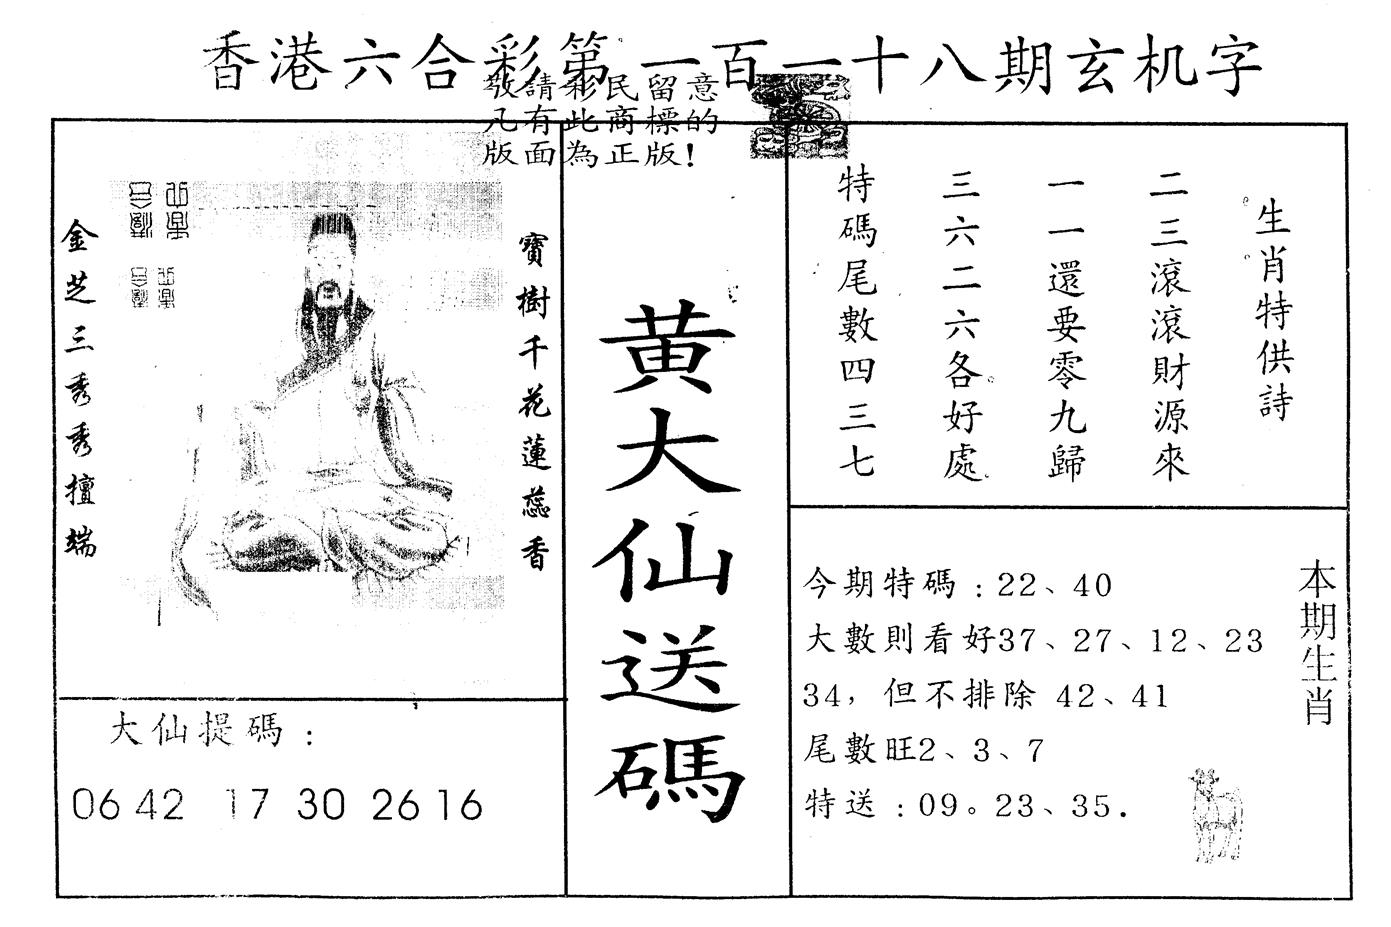 香港六合彩第一百一十八期玄机字
敬請彩民留意
凡有此商標的
版面為正版!
寶樹千花蓮蕊香
金芝三秀秀擅端
大仙提碼:
06 42 17 30 26 16
黄大仙送碼
生肖特供詩
二三滾滾財源來
一一還要零九歸
三六二六各好處
特碼尾數四三七
本期生肖
今期特碼:22、40
大數則看好37、27、12、23
34，但不排除 42、41
尾數旺2、3、7
特送:09。23、35.